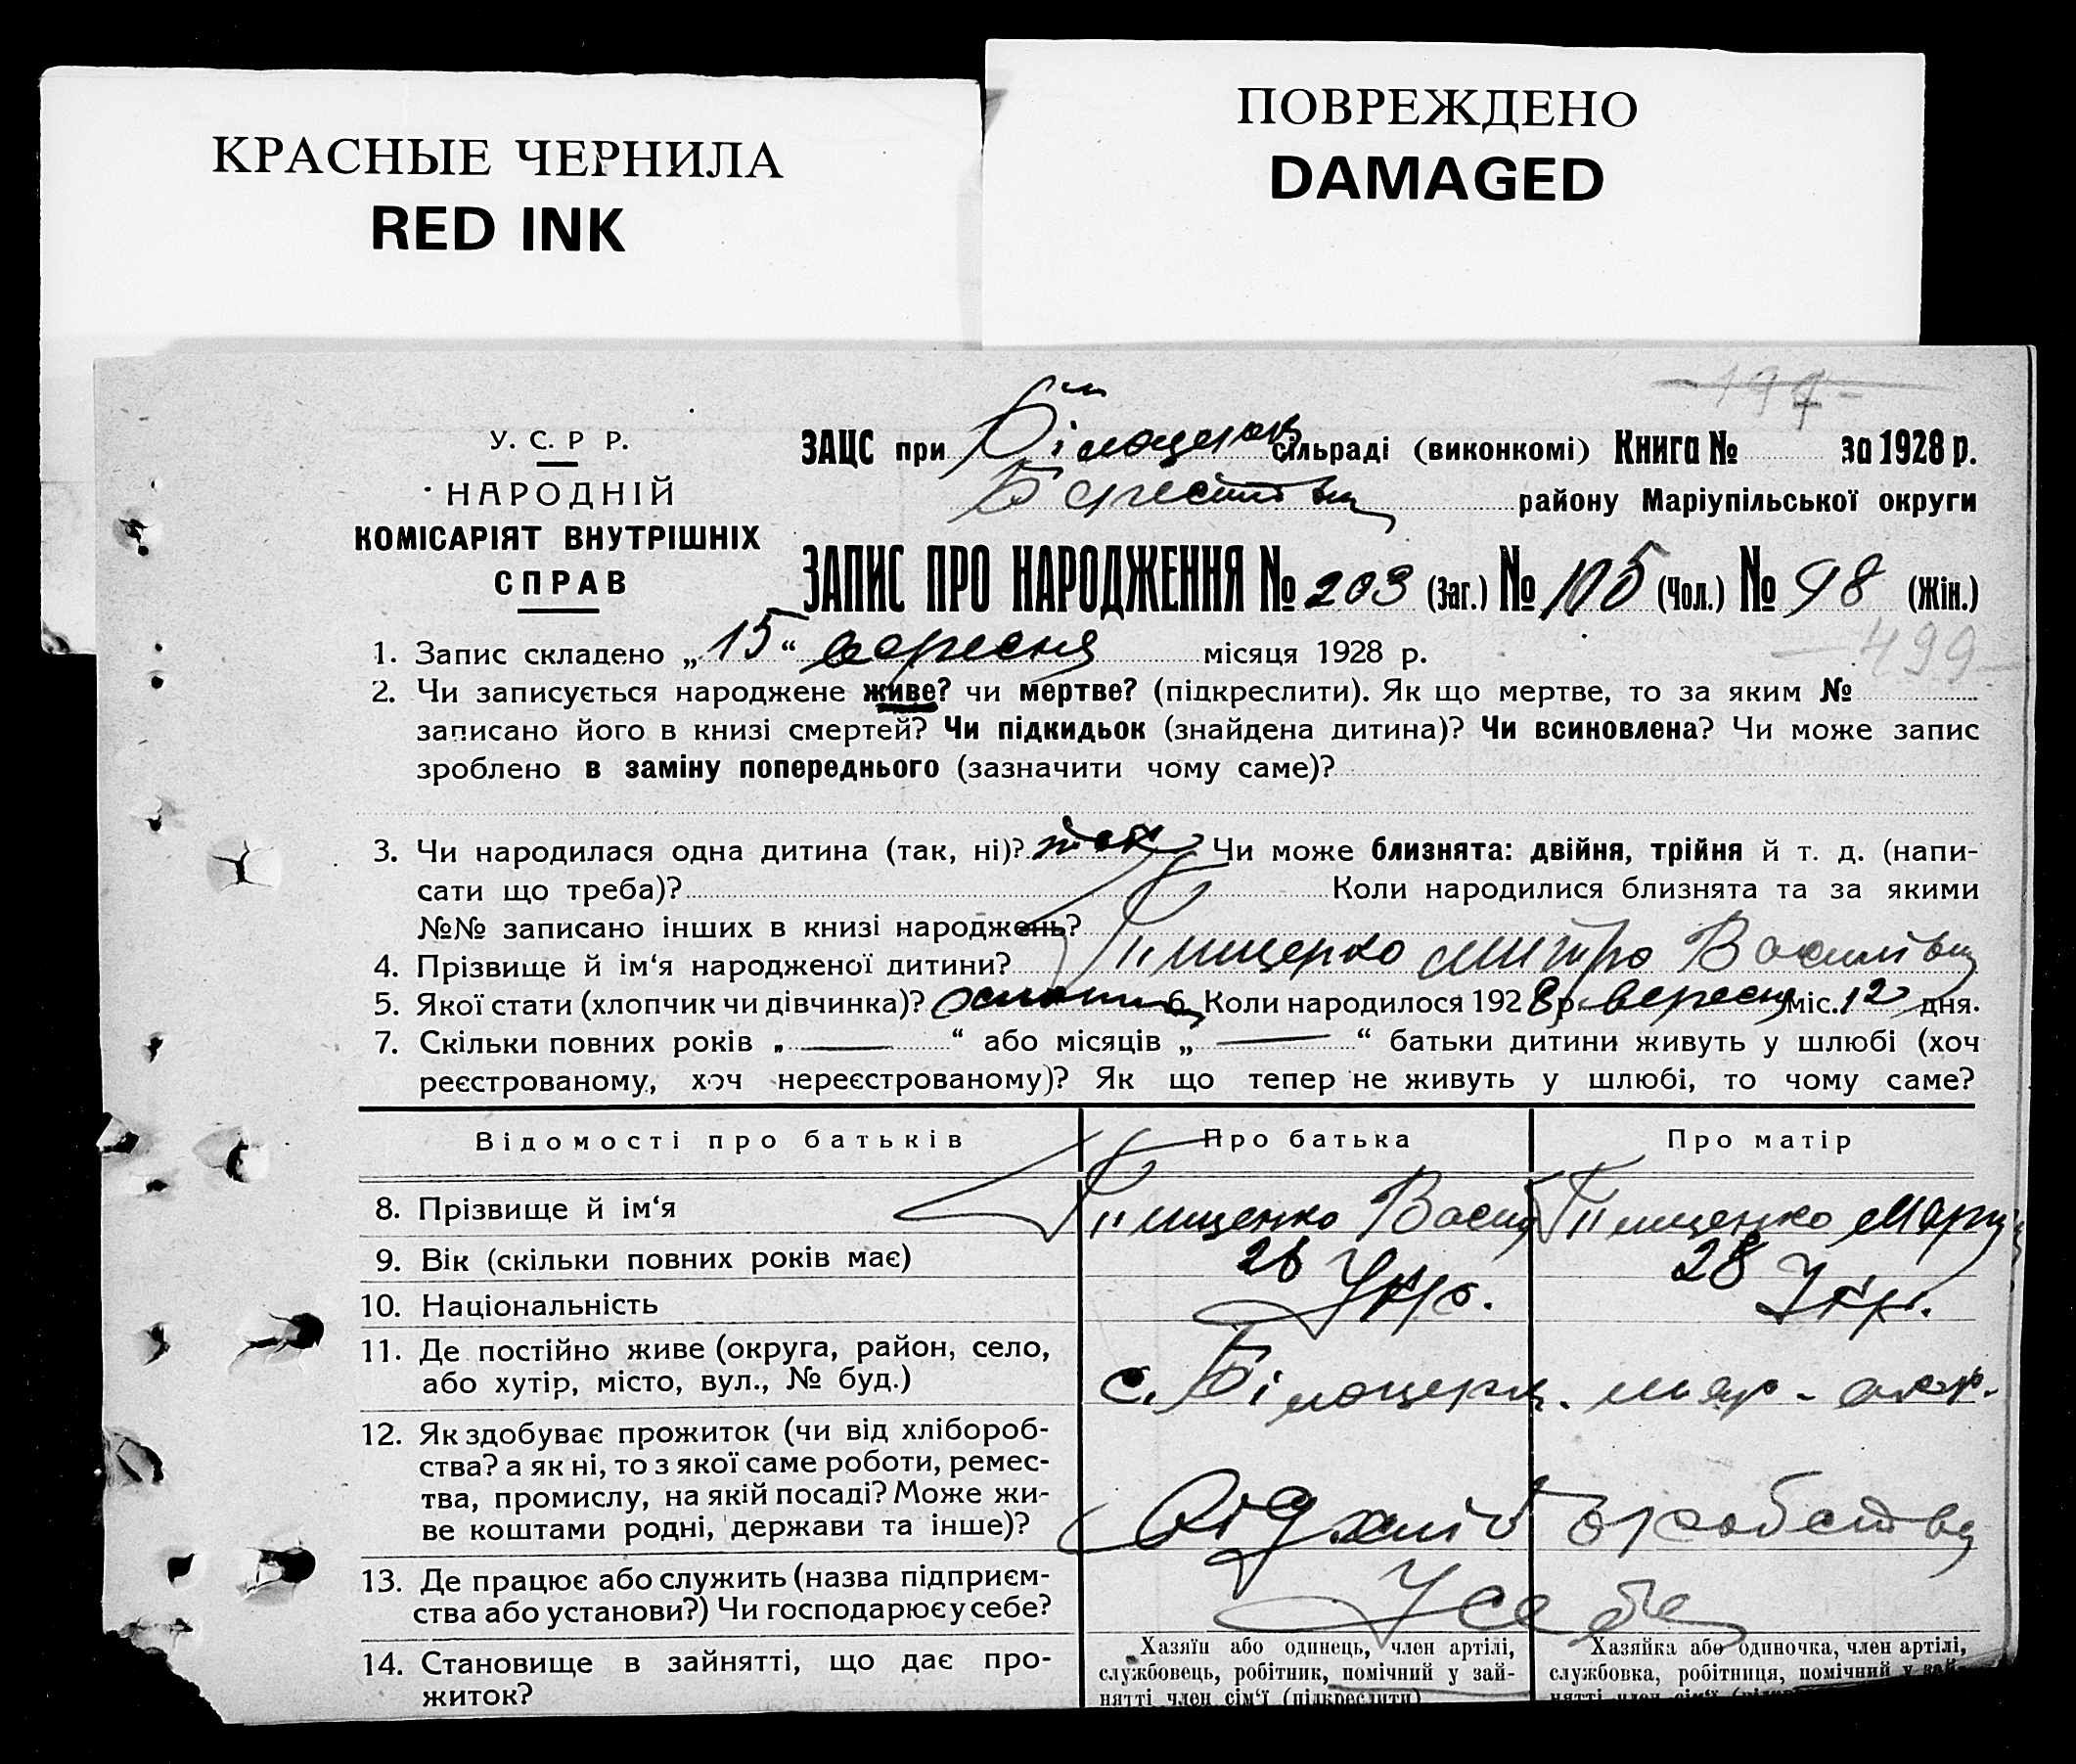 КРАСНЫЕ ЧЕРНИЛА
RED INK
ПОВРЕЖДЕНО
DAMAGED
У. С. Р Р.
НАРОДНІЙ
КОМІСАРІЯТ ВНУТРІШНІХ
СПРАВ
ЗАЦС при Білоцерк сільраді (виконкомі) Книга № за 1928 р.
району Маріупільської округи
ЗАПИС ПРО НАРОДЖЕННЯ № 203 (Заг.) № 105 (Чол.) № 98 (Жін.)
499
1. Запис складено „15“ вересня місяця 1928 р.
2. Чи записується народжене живе? чи мертве? (підкреслити). Як що мертве, то за яким №
записано його в книзі смертей? Чи підкидьок (знайдена дитина)? Чи всиновлена? Чи може запис
зроблено в заміну попереднього (зазначити чому саме)?
3. Чи народилася одна дитина (так, ні)? так Чи може близнята: двійня, трійня й т. д. (напи-
сати що треба)? Коли народилися близнята та за якими
№№ записано інших в книзі народжень?
4. Прізвище й ім‘я народженої дитини? Тимщенко Митро Василівич
5. Якої стати (хлопчик чи дівчинка)? 6. Коли народилося 1928 р. вересня міс. 12 дня.
7. Скільки повних років „ — “ або місяців „ — “ батьки дитини живуть у шлюбі (хоч
реєстрованому, хоч нереєстрованому)? Як що тепер не живуть у шлюбі, то чому саме?
Відомості про батьків Про батька Про матір
8. Прізвище й ім‘я Тимщенко Васил Тимщенко Мария
9. Вік (скільки повних років має) 28 28
10. Національність Укр. Укр.
11. Де постійно живе (округа, район, село,
або хутір, місто, вул., № буд.) с. Білоцерк. мар. окр.
12. Як здобуває прожиток (чи від хлібороб-
ства? а як ні, то з якої саме роботи, ремес-
тва, промислу, на якій посаді? Може жи-
ве коштами родні, держави та інше)? Від хліборобства
13. Де працює або служить (назва підприєм-
ства або установи?) Чи господарює у себе? У себе
14. Становище в зайнятті, що дає про-
житок?
Хазяїн або одинець, член артілі,
службовець, робітник, помічний у зай-
нятті член сім‘ї (підкреслити)
Хазяйка або одиночка, член артілі,
службовка, робітниця, помічний у зай-
нятті член сім‘ї